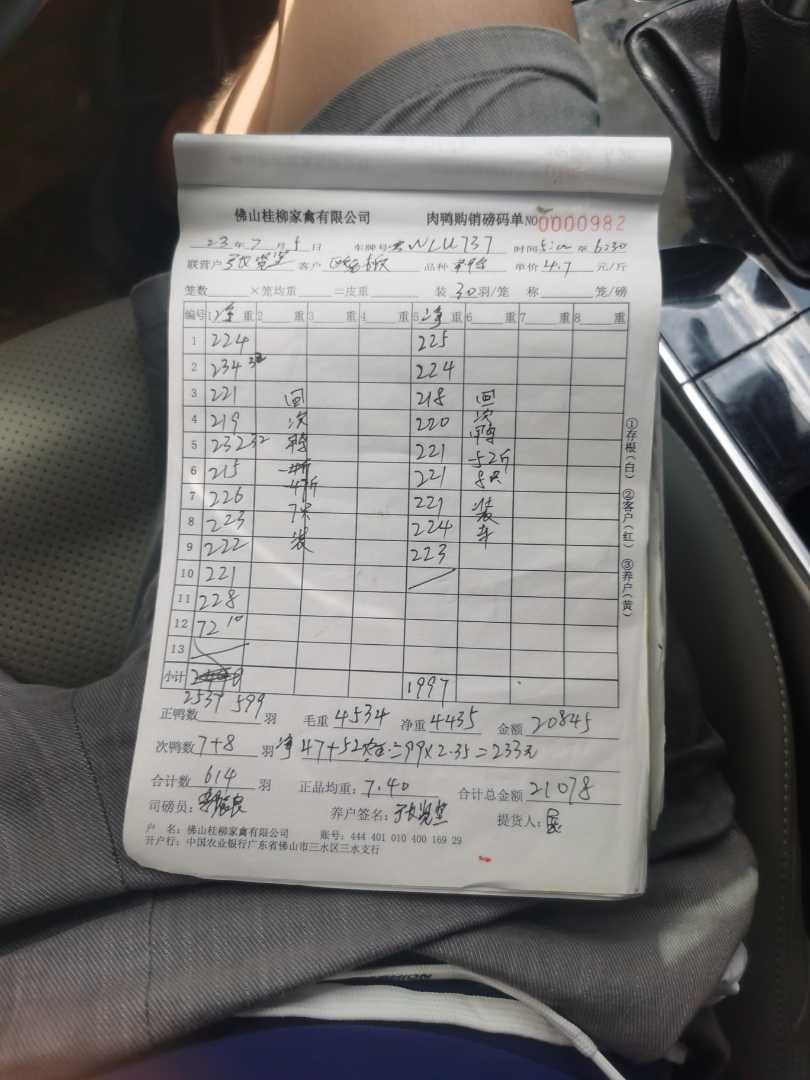 佛山桂柳家禽有限公司 肉鸭购销磅码单 NO 0000982
23年7月9日 车牌号 WLU737 时间 5:00 至 6:30
联营户 客户 品种 单价 4.7 元/斤
笼数 ×笼均重 =皮重 装 30 羽/笼 称 笼/磅
编号 1 净 重 2 重 3 重 4 重 5 净 重 6 重 7 重 8 重
1 224 225
2 234 32 224
3 221 回 218 回
4 219 次 220 次
5 232 32 鸭 221 鸭
6 215 221 52斤
7 226 47斤 221 8只
8 223 7只 224 装
9 222 装 223 车
10 221
11 228
12 72 10
13
小计 1997
2537 599
正鸭数 羽 毛重 4534 净重 4435 金额 20845
次鸭数 7+8 羽 净 47+52 =99×2.35=233元
合计数 614 羽 正品均重: 7.40 合计总金额 21078
司磅员: 养户签名: 提货人:
户 名: 佛山桂柳家禽有限公司 账号: 444 401 010 400 169 29
开户行: 中国农业银行广东省佛山市三水区三水支行
①存根(白) ②客户(红) ③养户(黄)